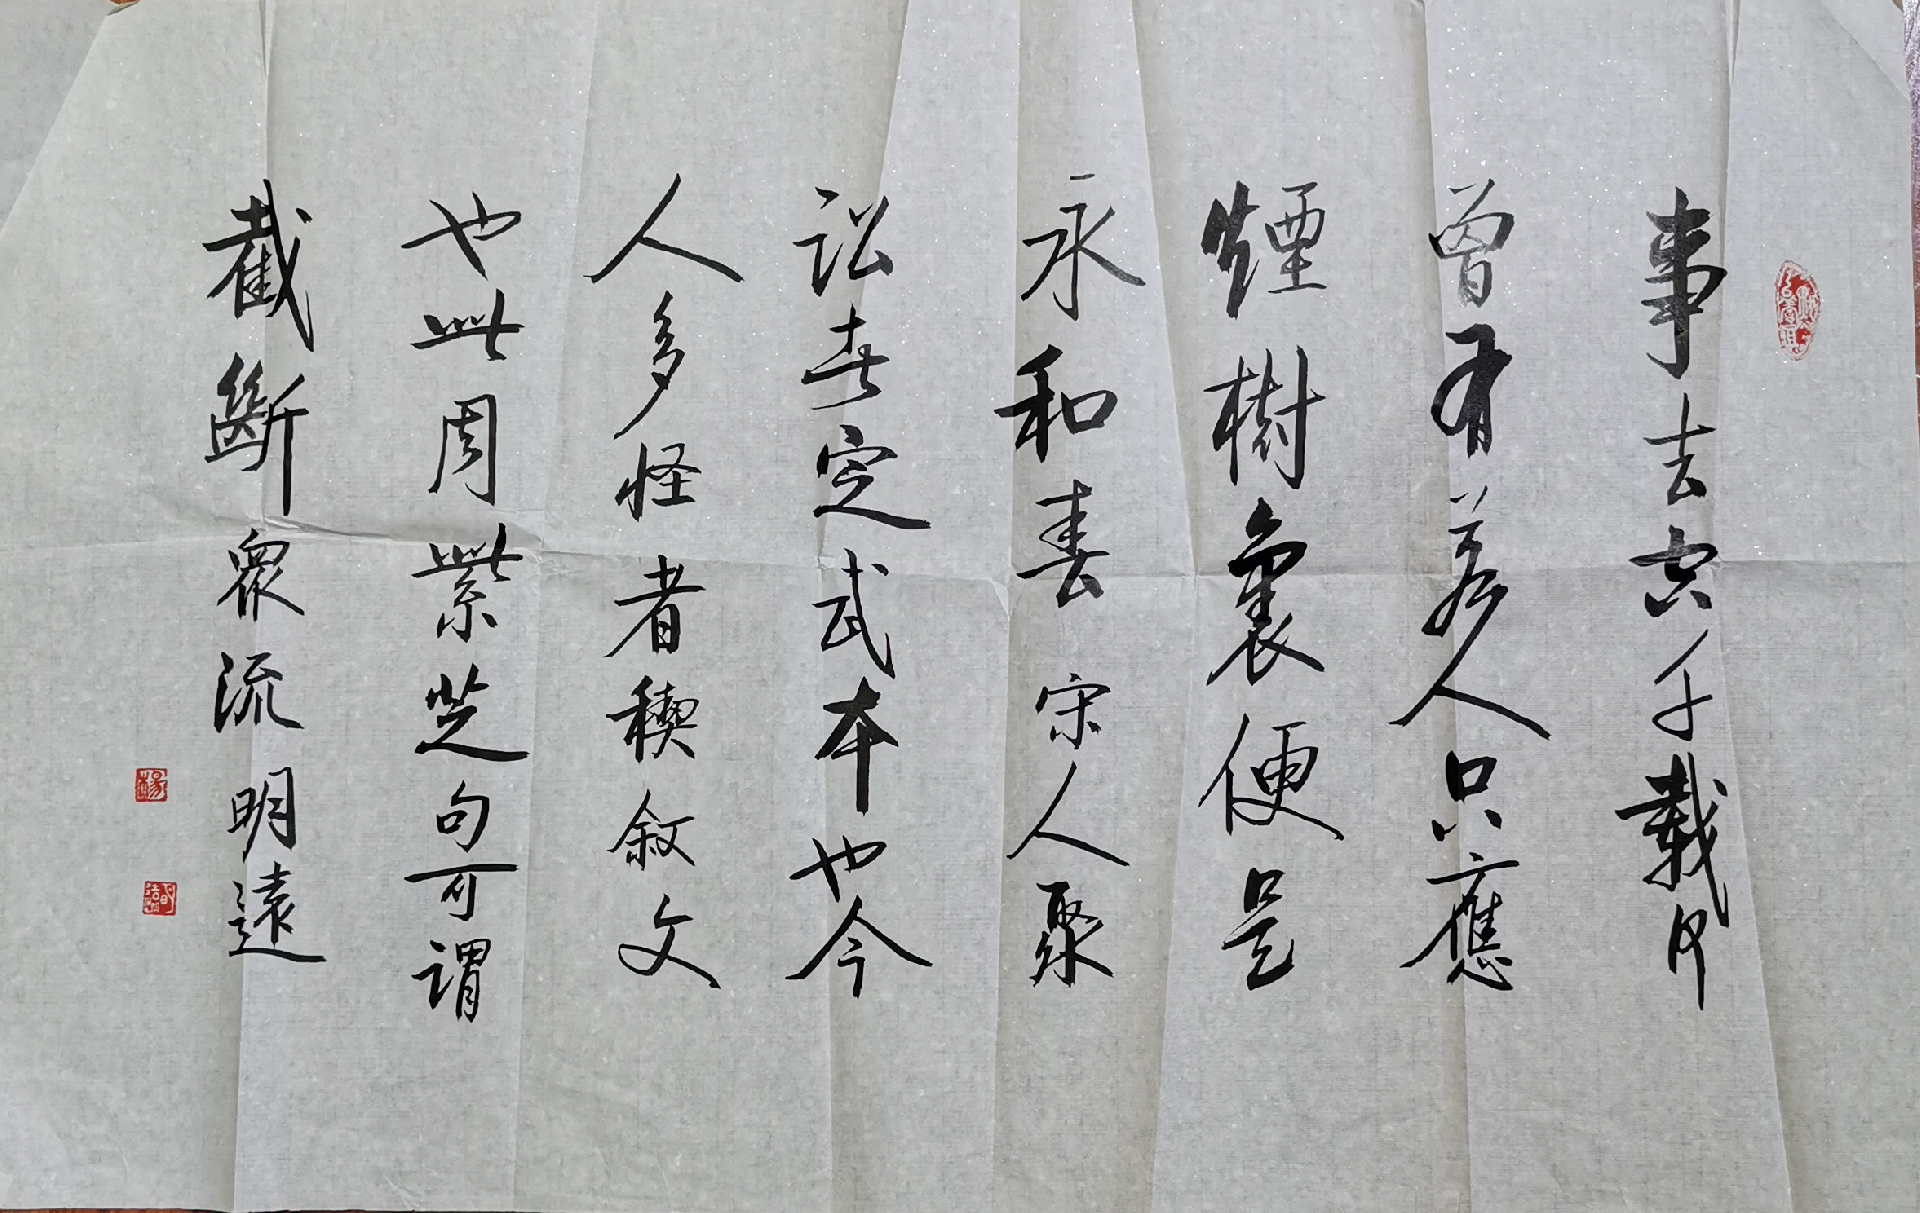 事去空千載何
曾有若人只應
煙樹裏便是
永和春宋人聚
訟者定武本也今
人多怪者禊敘文
也此周紫芝句可謂
截斷眾流明遠
楊